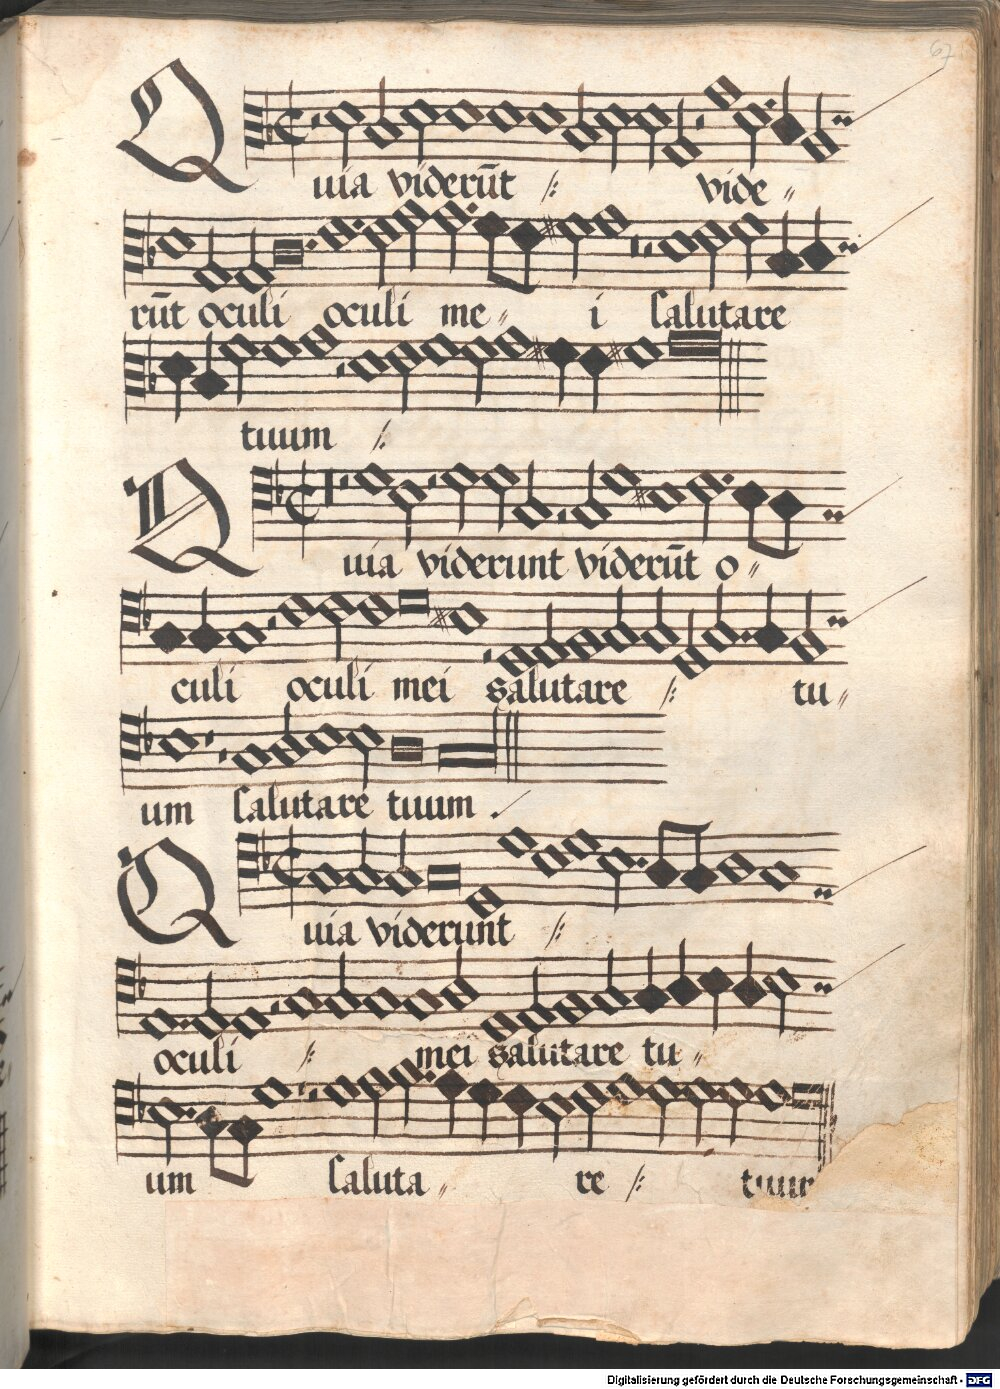 67
Quia viderūt /: vide〃
rūt oculi oculi me〃 i Salutare
tuum /:
Quia viderunt viderūt o〃
culi oculi mei salutare /: tu〃
um Salutare tuum ./
Quia viderunt /:
oculi /: mei salutare tu〃
um Saluta〃 re /: tuum
Digitalisierung gefördert durch die Deutsche Forschungsgemeinschaft - DFG